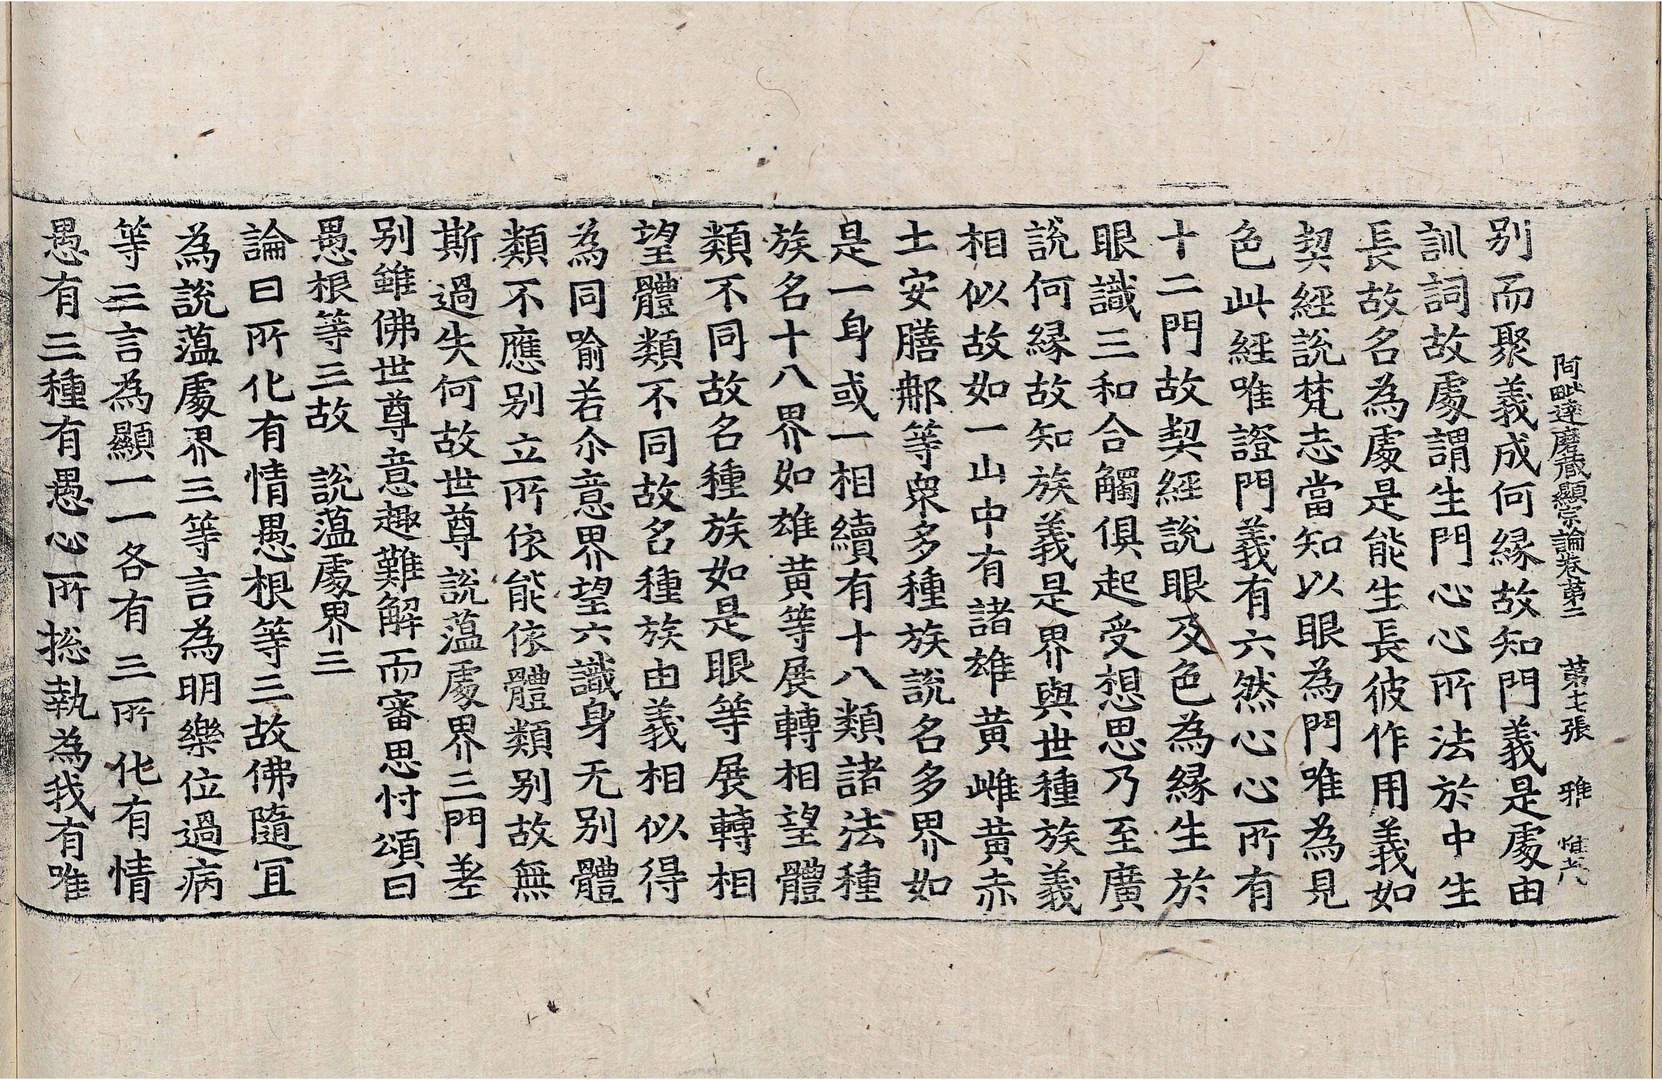 阿毗達磨藏顯宗論卷第二 第七張 雅 惟茂
別而聚義成何緣故知門義是處由
訓詞故處謂生門心心所法於中生
長故名為處是能生長彼作用義如
契經說梵志當知以眼為門唯為見
色此經唯證門義有六然心心所有
十二門故契經說眼及色為緣生於
眼識三和合觸俱起受想思乃至廣
說何緣故知族義是界與世種族義
相似故如一山中有諸雄黃雌黃赤
土安膳那等衆多種族說名多界如
是一身或一相續有十八類諸法種
族名十八界如雄黃等展轉相望體
類不同故名種族如是眼等展轉相
望體類不同故名種族由義相似得
為同喻若尒意界望六識身无別體
類不應別立所依能依體類別故無
斯過失何故世尊說蘊處界三門差
別雖佛世尊意趣難解而審思忖頌曰
愚根等三故 說蘊處界三
論曰所化有情愚根等三故佛隨冝
為說蘊處界三等言為明樂位過病
等三言為顯一一各有三所化有情
愚有三種有愚心所揔執為我有唯